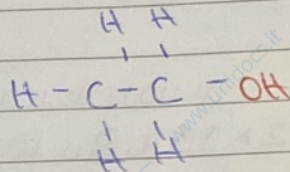 H H
H - C - C - OH
H H
www.unidocs.it